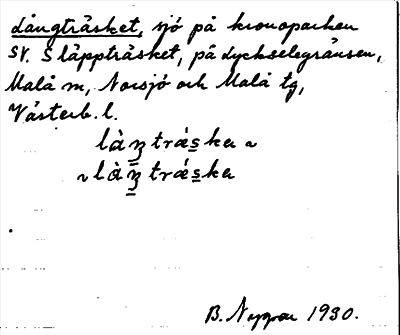 Långträsket, sjö på kronoparken
SV. Släppträsket, på Lyckselegränsen,
Malå m, Norsjö och Malå tg,
Västerb. l.
làŋträ́ska ~
~ là̀ŋträ́ska
B. Nygren 1930.